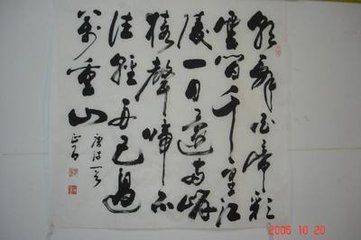 朝辭白帝彩
雲間千里江
陵一日還兩岸
猿聲啼不
住輕舟已過
萬重山
唐诗一首
2006 10 20